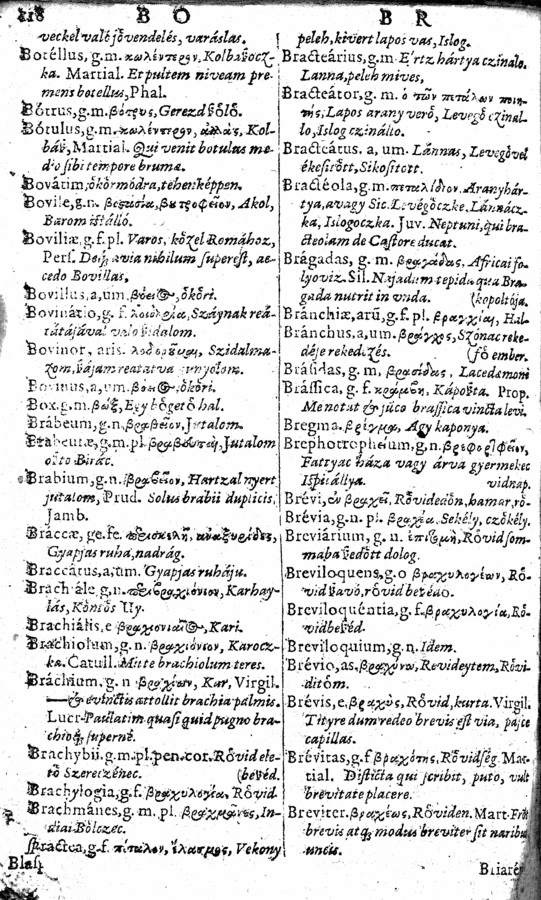 118 BO BR
veckel valé jövendelés, varáslas.
Botéllus, g.m. κωλέντερον, Kolbaỽocz-
ka. Martial. Et pultem niveam pre-
mens botellus, Phal.
Bótrus, g.m. βότρυς, Gerezd
Bótulus, g.m. κωλέντερον, Kol-
báỽ, Martial. Qui venit botulus me-
dio sibi tempore brumæ.
Bovátim, ökörmódra, tehenképpen.
Bovíle, g.n. Akol,
Barom istálló.
Boviliæ, g.f.pl. Varos, közel Romához,
Pers. via nihilum superest, ac-
cedo Bovillas,
Bovillus, a, um. ököri.
Bovinátio, g.f. Száynak
Bovinor, aris. Szidalma-
zom,
Bovinus, a, um. ököri.
Box, g.m. βώξ, Egy bögetö hal.
Brábeum, g.n. βραβεῖον, Jutalom.
Brabeutæ, g.m.pl. βραβευταὶ, Jutalom
osto Birác.
Brabium, g.n. βραβεῖον, Hartzal nyert
jutalom, Prud. Solus brabii duplicis,
Jamb.
Braccæ, ge.fe. ἀναξυρίδες,
Gyapjas ruha, nadrág.
Braccátus, a, um. Gyapjas ruháju.
Brachiále, g.n. περιβραχιόνιον, Karhay-
lás, Köntös Uy.
Brachiális, e Kari.
Brachiolum, g.n. βραχιόνιον, Karocz-
ka. Catull. Mitte brachiolum teres.
Bráchium, g.n βραχίων, Kar, Virgil.
— & evinctis attollit brachia palmis.
Lucr. Paulatim quasi quid pugno bra-
chioq; supernè.
Brachybii. g.m.pl.pen.cor. Röỽid éle-
tö Szerezénec. (beỽéd.
Brachylogia, g.f. βραχυλογία, Röỽid
Brachmánes, g.m. pl. βραχμᾶνες, In-
diai Bölczec.
Bractea, g.f. πέταλον, ἔλασμος, Vekony
Blasf
peleh, kivert lapos vas, Islog.
Bracteárius, g.m. Ertz hártya czinálo.
Lanna, peleh mives,
Bracteátor, g.m. ὁ τῶν πετάλων ποιη-
τής, Lapos arany verö, Levegö czinál-
lo, Islog czinállo.
Bracteátus. a, um. Lánnas, Levegövel
ékesitött, Sikositott.
Bractéola, g.f. πεταλίδιον. Arany hár-
tya, avagy Sic. Levégöczke. Lánnácz-
ka, Islogoczka. Juv. Neptuni, qui bra-
cteolam de Castore ducat.
Brágadas, g. m. βραγάδας, Africai fo-
lyoviz. Sil. Najadum tepida qua Bra-
gada nutrit in unda. (kopoltója.
Bránchiæ, arũ, g.f. pl. βραγχίαι, Hal-
Bránchus, a, um. βράγχος, Szónac reke-
déje rekedzés. (fö ember.
Brásidas, g.m, βρασίδας, Lacedæmoni
Brássica, g. f. κράμβη, Káposta. Prop.
Me notat & júco brassica vincta levi.
Bregma. βρέγμα, Agy kaponya.
Brephotrophéum, g.n. βρεφοτροφεῖον,
Fattyac háza vagy árva gyermekec
Ispitállya. vidnap.
Brévi, ἐν βραχεῖ, Röỽidedön, hamar, rö-
Brévia, g.n. pl. βραχέα. Sekély, czökély.
Breviárium, g. n. ἐπιτομὴ, Röỽid som-
mába ỽedött dolog.
Breviloquens, g.o βραχυλογέων, Rö-
vid
Breviloquéntia, g.f. βραχυλογία, Rö-
vidbeỽéd.
Breviloquium, g.n. Idem.
Brévio, as. βραχύνω, Reviditem, Röỽi-
ditöm.
Brévis, e, βραχύς, Röỽid, kurta. Virgil.
Tityre dum redeo brevis est via, pasce
capillas.
Brévitas, g.f βραχύτης, Röỽidség. Mar-
tial. Disticha qui scribit, puto, vult
brevitate placere.
Bréviter. βραχέως, Röỽiden. Mart.
brevis atq; modus breviter sit naribus
uncis.
Briaré